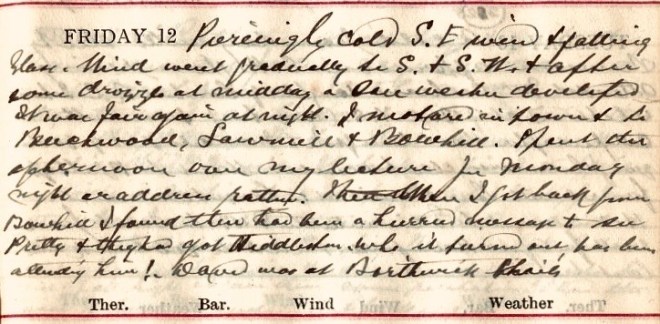 FRIDAY 12 Piercingly cold S. E wind & falling
glass. Wind went gradually to S. & S. W. & after
some drizzle at midday a low wester developed
It was fair again at night. I motored in town & to
Beechwood, Sawmill & Bowhill. Spent the
afternoon over my lecture for Monday
night or address rather. When I got back from
Bowhill I found there had been a hurried message to see
Pretty & they had got Middleton who it turns out has been
attending him! Dave was at Borthwick Shiels
Ther. Bar. Wind Weather